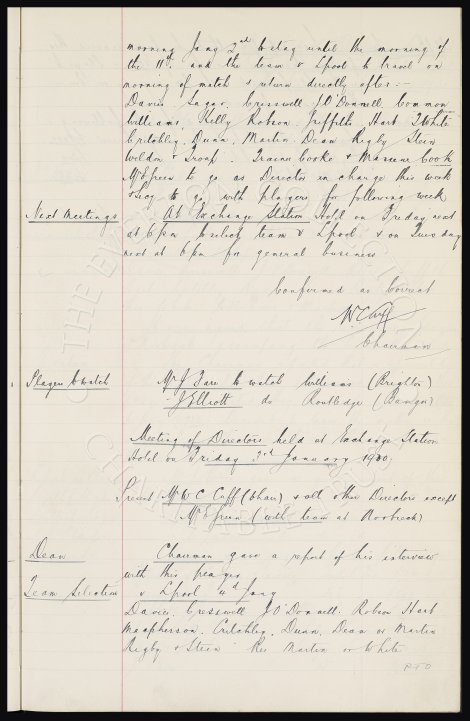 morning Jany 2nd & stay until the morning of
the 11th. and the team v Lpool to travel on
morning of match & return directly after.—
Davies Sagar. Cresswell J O'Donnell Common
Williams, Kelly Robson Griffiths Hart T White
Critchley, Dunn, Martin Dean Rigby Stein
Weldon & Troup. Trainer Cooke & Masseur Cook
Mr Green to go as Director in charge this week
to go with players for following week
Next Meetings At Exchange Station Hotel on Friday next
at 6 pm to select team v Lpool & on Tuesday
next at 6 pm for general business
Confirmed as Correct
W C Cuff
Chairman
Players to watch Mr J Fare to watch Williams (Brighton)
J Elliott do Routledge (Bangor)
Meeting of Directors held at Exchange Station
Hotel on Friday 3rd January 1930
Present Mr W C Cuff (Chair) & all other Directors except
Mr Green (with team at)
Dean Chairman gave a report of his interview
with this player
Team Selection v Lpool 4th Jany
Davies. Cresswell J O'Donnell. Robson Hart
Macpherson. Critchley, Dunn, Dean or Martin
Rigby & Stein Res Martin or White
P T O